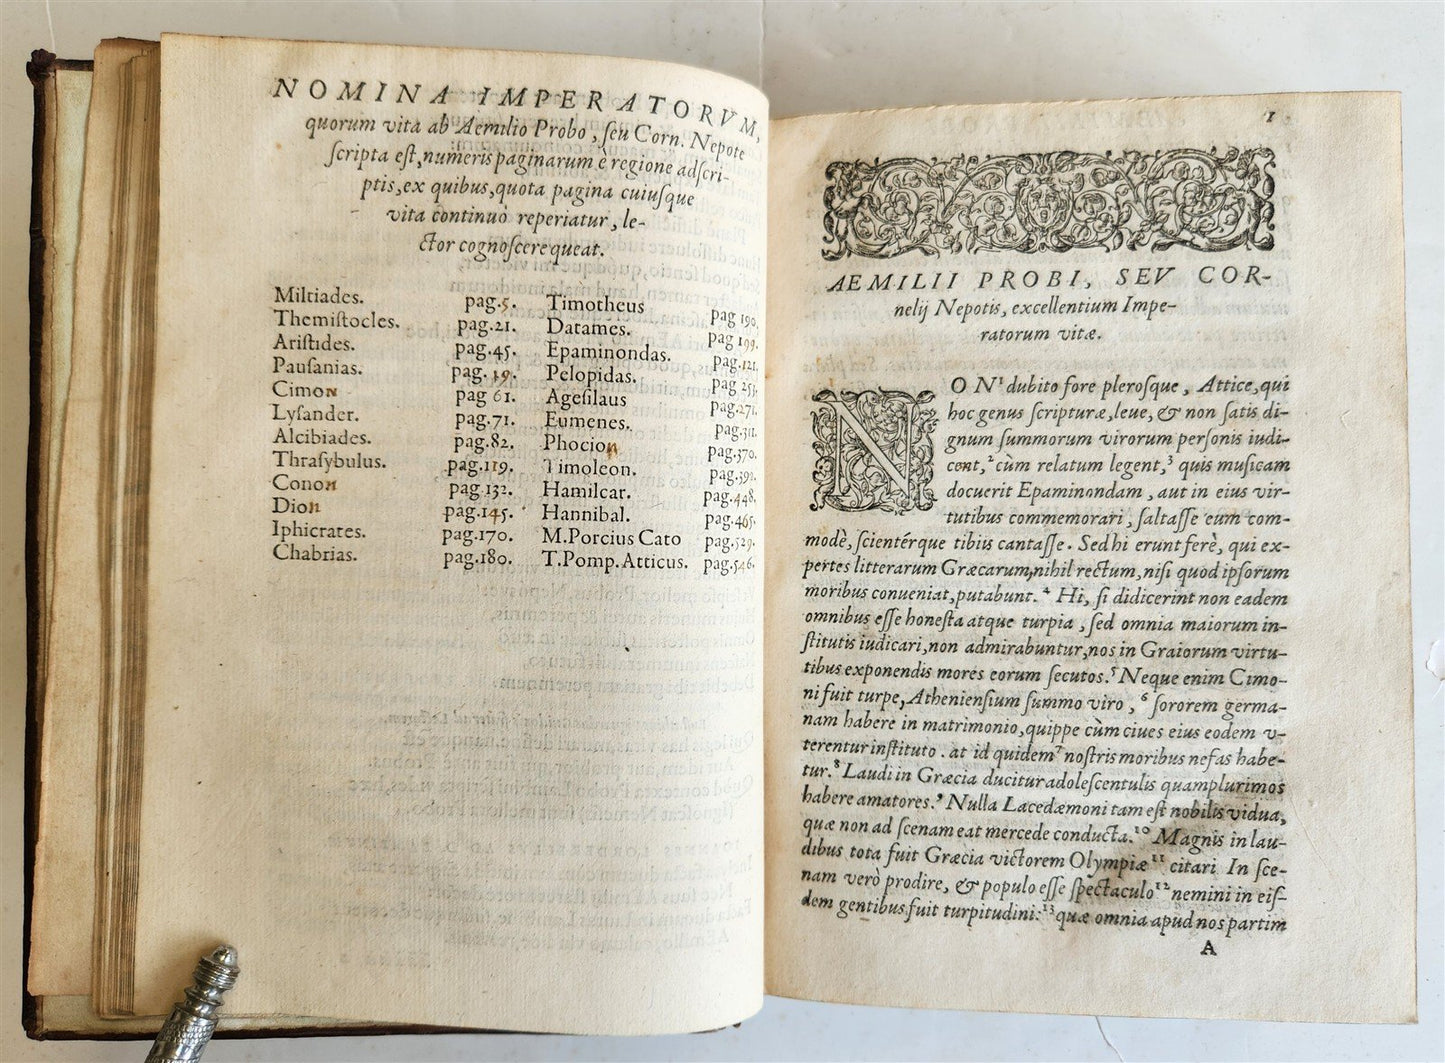 NOMINA IMPERATORVM,
quorum vita ab Aemilio Probo, seu Corn. Nepote
scripta est, numeris paginarum è regione adscri-
ptis, ex quibus, quota pagina cuiusque
vita continuò reperiatur, le-
ctor cognoscere queat.
Miltiades. pag.5.
Themistocles. pag.21.
Aristides. pag.45.
Pausanias. pag.
Cimon pag 61.
Lysander. pag.71.
Alcibiades. pag.82.
Thrasybulus. pag.119.
Conon pag.132.
Dion pag.145.
Iphicrates. pag.170.
Chabrias. pag.180.
Timotheus pag 190.
Datames. pag 199.
Epaminondas. pag.
Pelopidas. pag 251.
Agesilaus pag.271.
Eumenes. pag.311.
Phocion pag.370.
Timoleon. pag.392.
Hamilcar. pag.448.
Hannibal. pag.465.
M.Porcius Cato pag.529.
T.Pomp.Atticus. pag.546.
1
AEMILII PROBI, SEV COR-
nelij Nepotis, excellentium Impe-
ratorum vitæ.
NON¹ dubito fore plerosque, Attice, qui
hoc genus scripturæ, leue, & non satis di-
gnum summorum virorum personis iudi-
cent,² cùm relatum legent,³ quis musicam
docuerit Epaminondam, aut in eius vir-
tutibus commemorari, saltasse eum com-
modè, scientérque tibiis cantasse. Sed hi erunt ferè, qui ex-
pertes litterarum Græcarum, nihil rectum, nisi quod ipsorum
moribus conueniat, putabunt.⁴ Hi, si didicerint non eadem
omnibus esse honesta atque turpia, sed omnia maiorum in-
stitutis iudicari, non admirabuntur, nos in Graiorum virtu-
tibus exponendis mores eorum secutos.⁵ Neque enim Cimo-
ni fuit turpe, Atheniensium summo viro,⁶ sororem germa-
nam habere in matrimonio, quippe cùm ciues eius eodem v-
terentur instituto. at id quidem⁷ nostris moribus nefas habe-
tur.⁸ Laudi in Græcia ducitur adolescentulis quamplurimos
habere amatores.⁹ Nulla Lacedæmoni tam est nobilis vidua,
quæ non ad scenam eat mercede conducta.¹⁰ Magnis in lau-
dibus tota fuit Græcia victorem Olympiæ¹¹ citari In sce-
nam verò prodire, & populo esse spectaculo¹² nemini in eis-
dem gentibus fuit turpitudini:¹³ quæ omnia apud nos partim
A